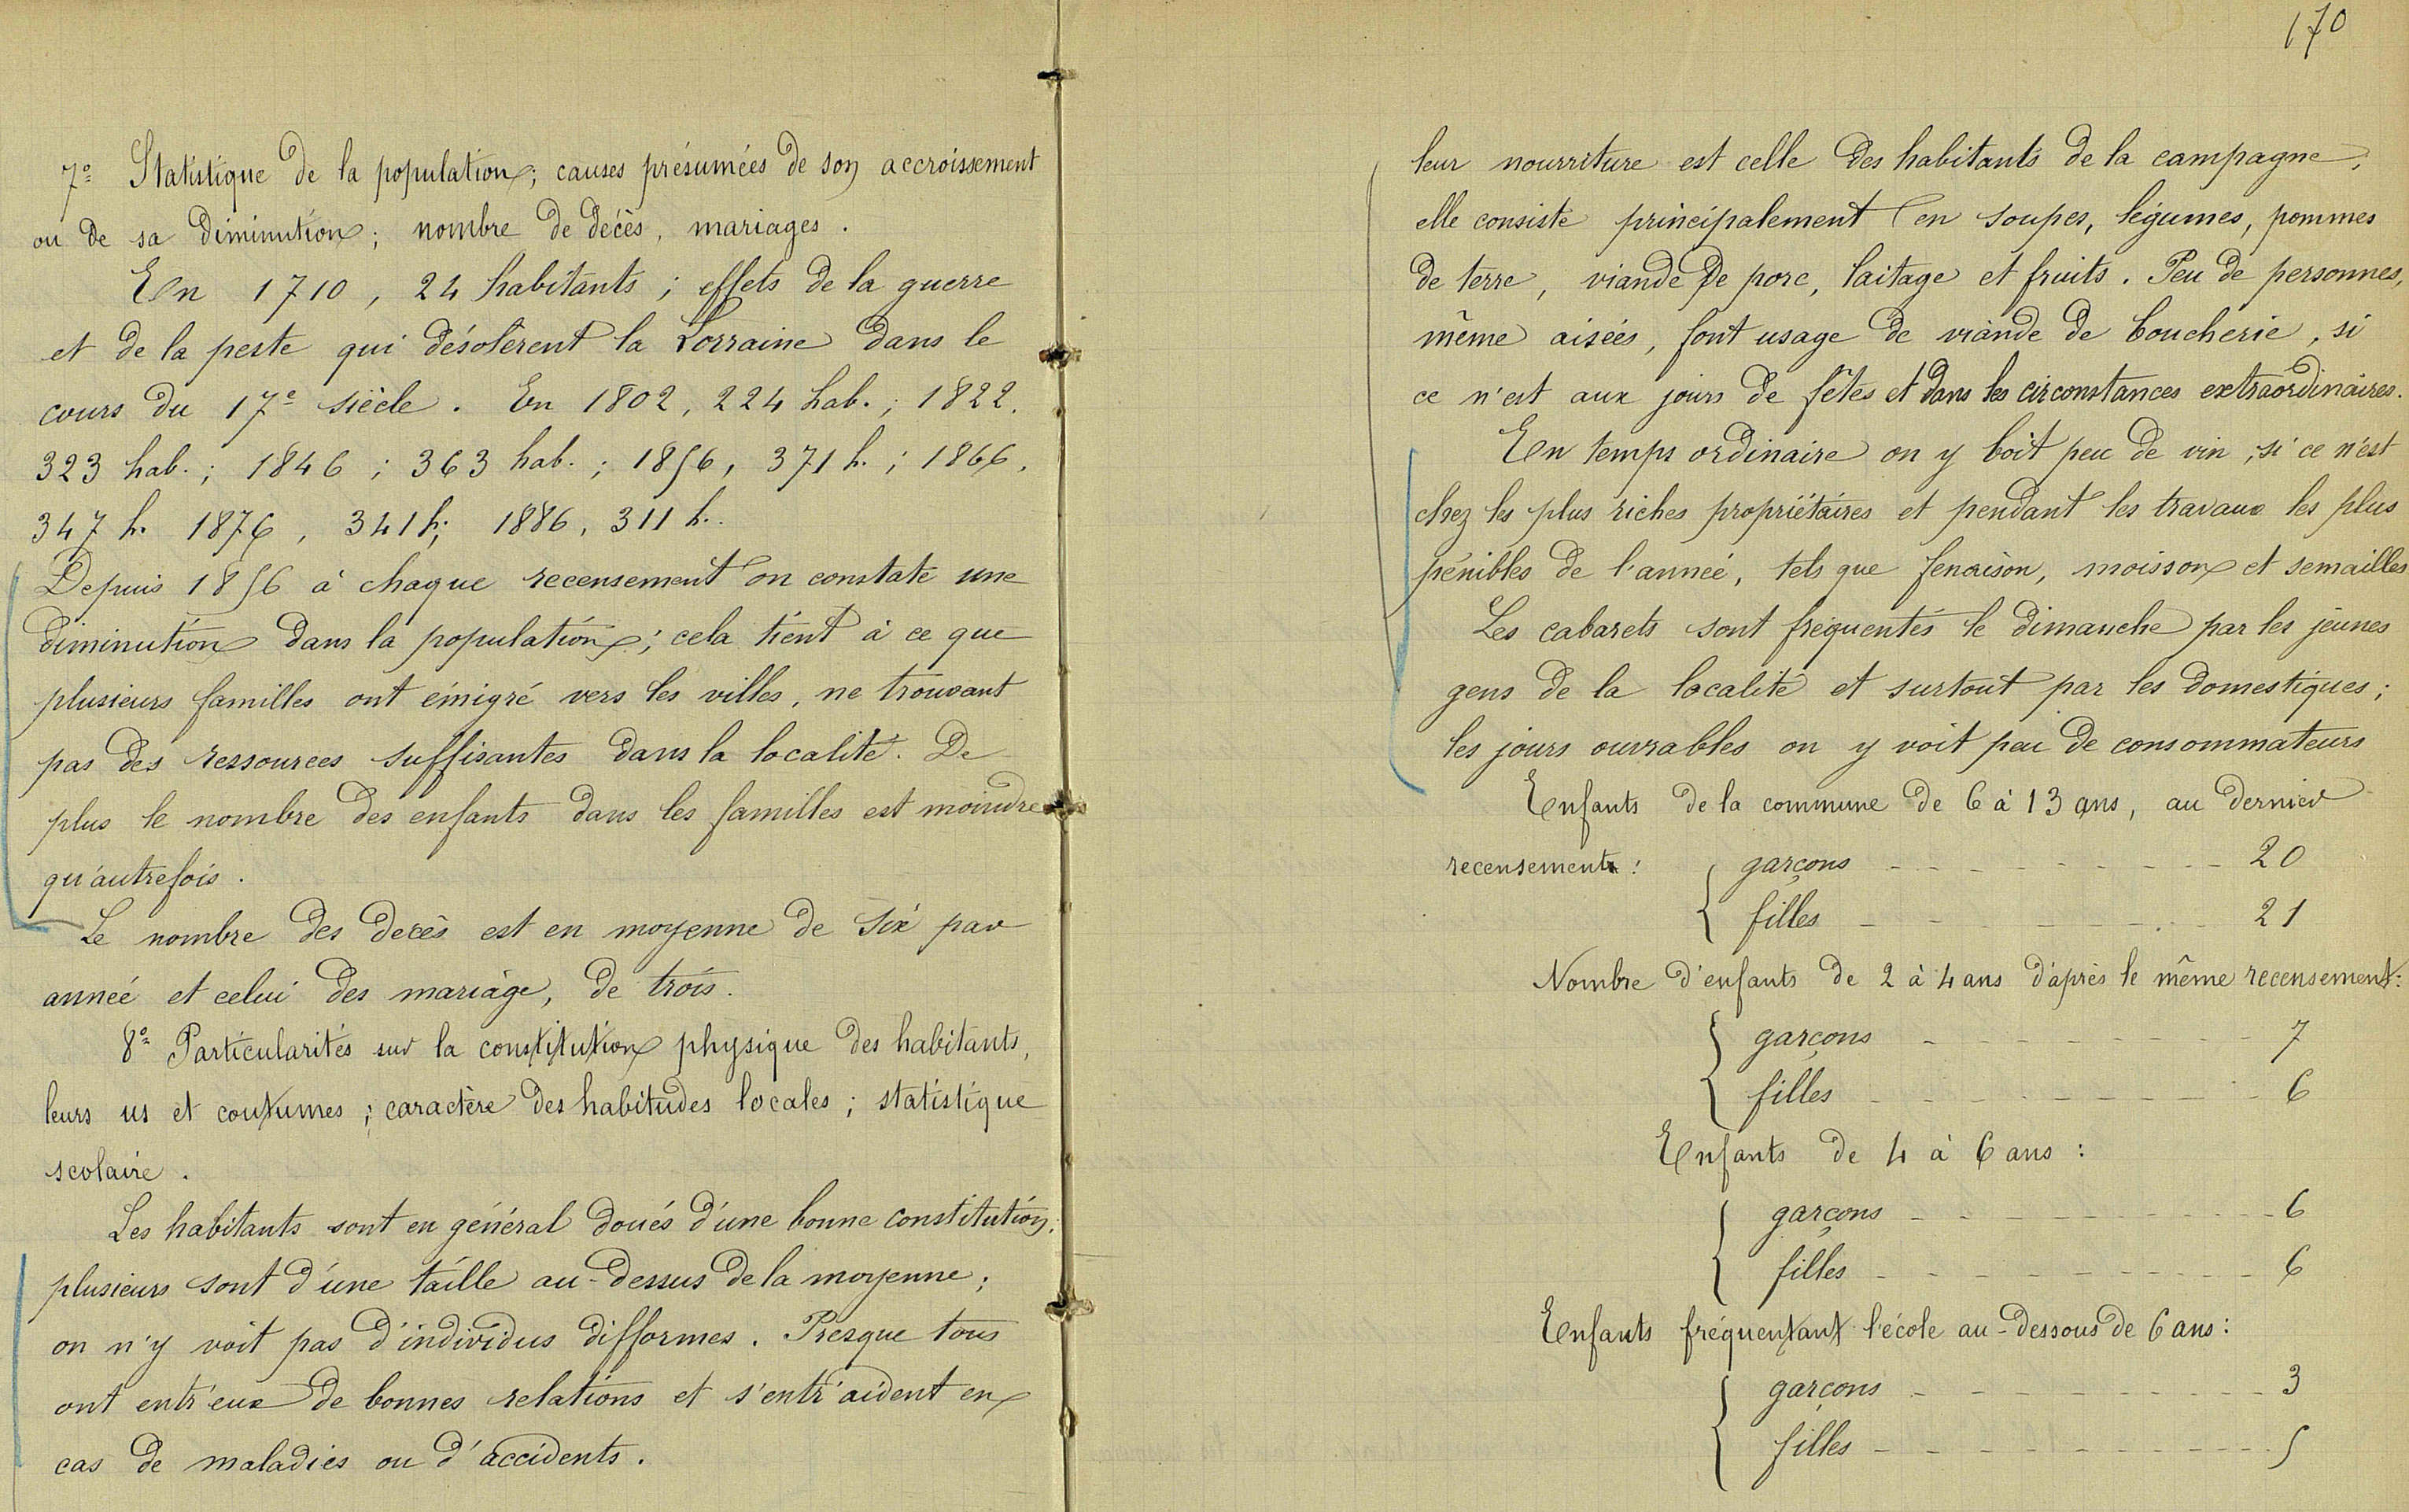 7º Statistique de la population; causes présumées de son accroissement
ou de sa diminution; nombre de décès, mariages.
En 1710, 24 habitants; effets de la guerre
et de la peste qui désolèrent la Lorraine dans le
cours du 17e siècle. En 1802, 224 hab.; 1822,
323 hab.; 1846; 363 hab.; 1856, 371 h.; 1866,
347 h. 1876, 341 h; 1886, 311 h..
Depuis 1856 à chaque recensement on constate une
diminution dans la population; cela tient à ce que
plusieurs familles ont émigré vers les villes, ne trouvant
pas des ressources suffisantes dans la localité. De
plus le nombre des enfants dans les familles est moindre
qu'autrefois.
Le nombre des decès est en moyenne de six par
année et celui des mariage, de trois.
8º Particularités sur la constitution physique des habitants,
leurs us et coutumes; caractère des habitudes locales; statistique
scolaire.
Les habitants sont en général doués d'une bonne constitution;
plusieurs sont d'une taille au-dessus de la moyenne;
on n'y voit pas d'individus difformes. Presque tous
ont entr'eux de bonnes relations et s'entr'aident en
cas de maladies ou d'accidents.
170
leur nourriture est celle des habitants de la campagne;
elle consiste principalement en soupes, légumes, pommes
de terre, viande de porc, laitage et fruits. Peu de personnes,
même aisées, font usage de viande de boucherie, si
ce n'est aux jours de fêtes et dans les circonstances extraordinaires.
En temps ordinaire on y boit peu de vin, si ce n'est
chez les plus riches propriétaires et pendant les travaux les plus
pénibles de l'année, tels que fenaison, moisson et semailles
Les cabarets sont fréquentés le dimanche par les jeunes
gens de la localité et surtout par les domestiques;
les jours ouvrables on y voit peu de consommateurs
Enfants de la commune de 6 à 13 ans, au dernier
recensement: garçons 20
filles 21
Nombre d'enfants de 2 à 4 ans d'après le même recensement:
garçons 7
filles 6
Enfants de 4 à 6 ans:
garçons 6
filles 6
Enfants fréquentant l'école au-dessous de 6 ans:
garçons 3
filles 5